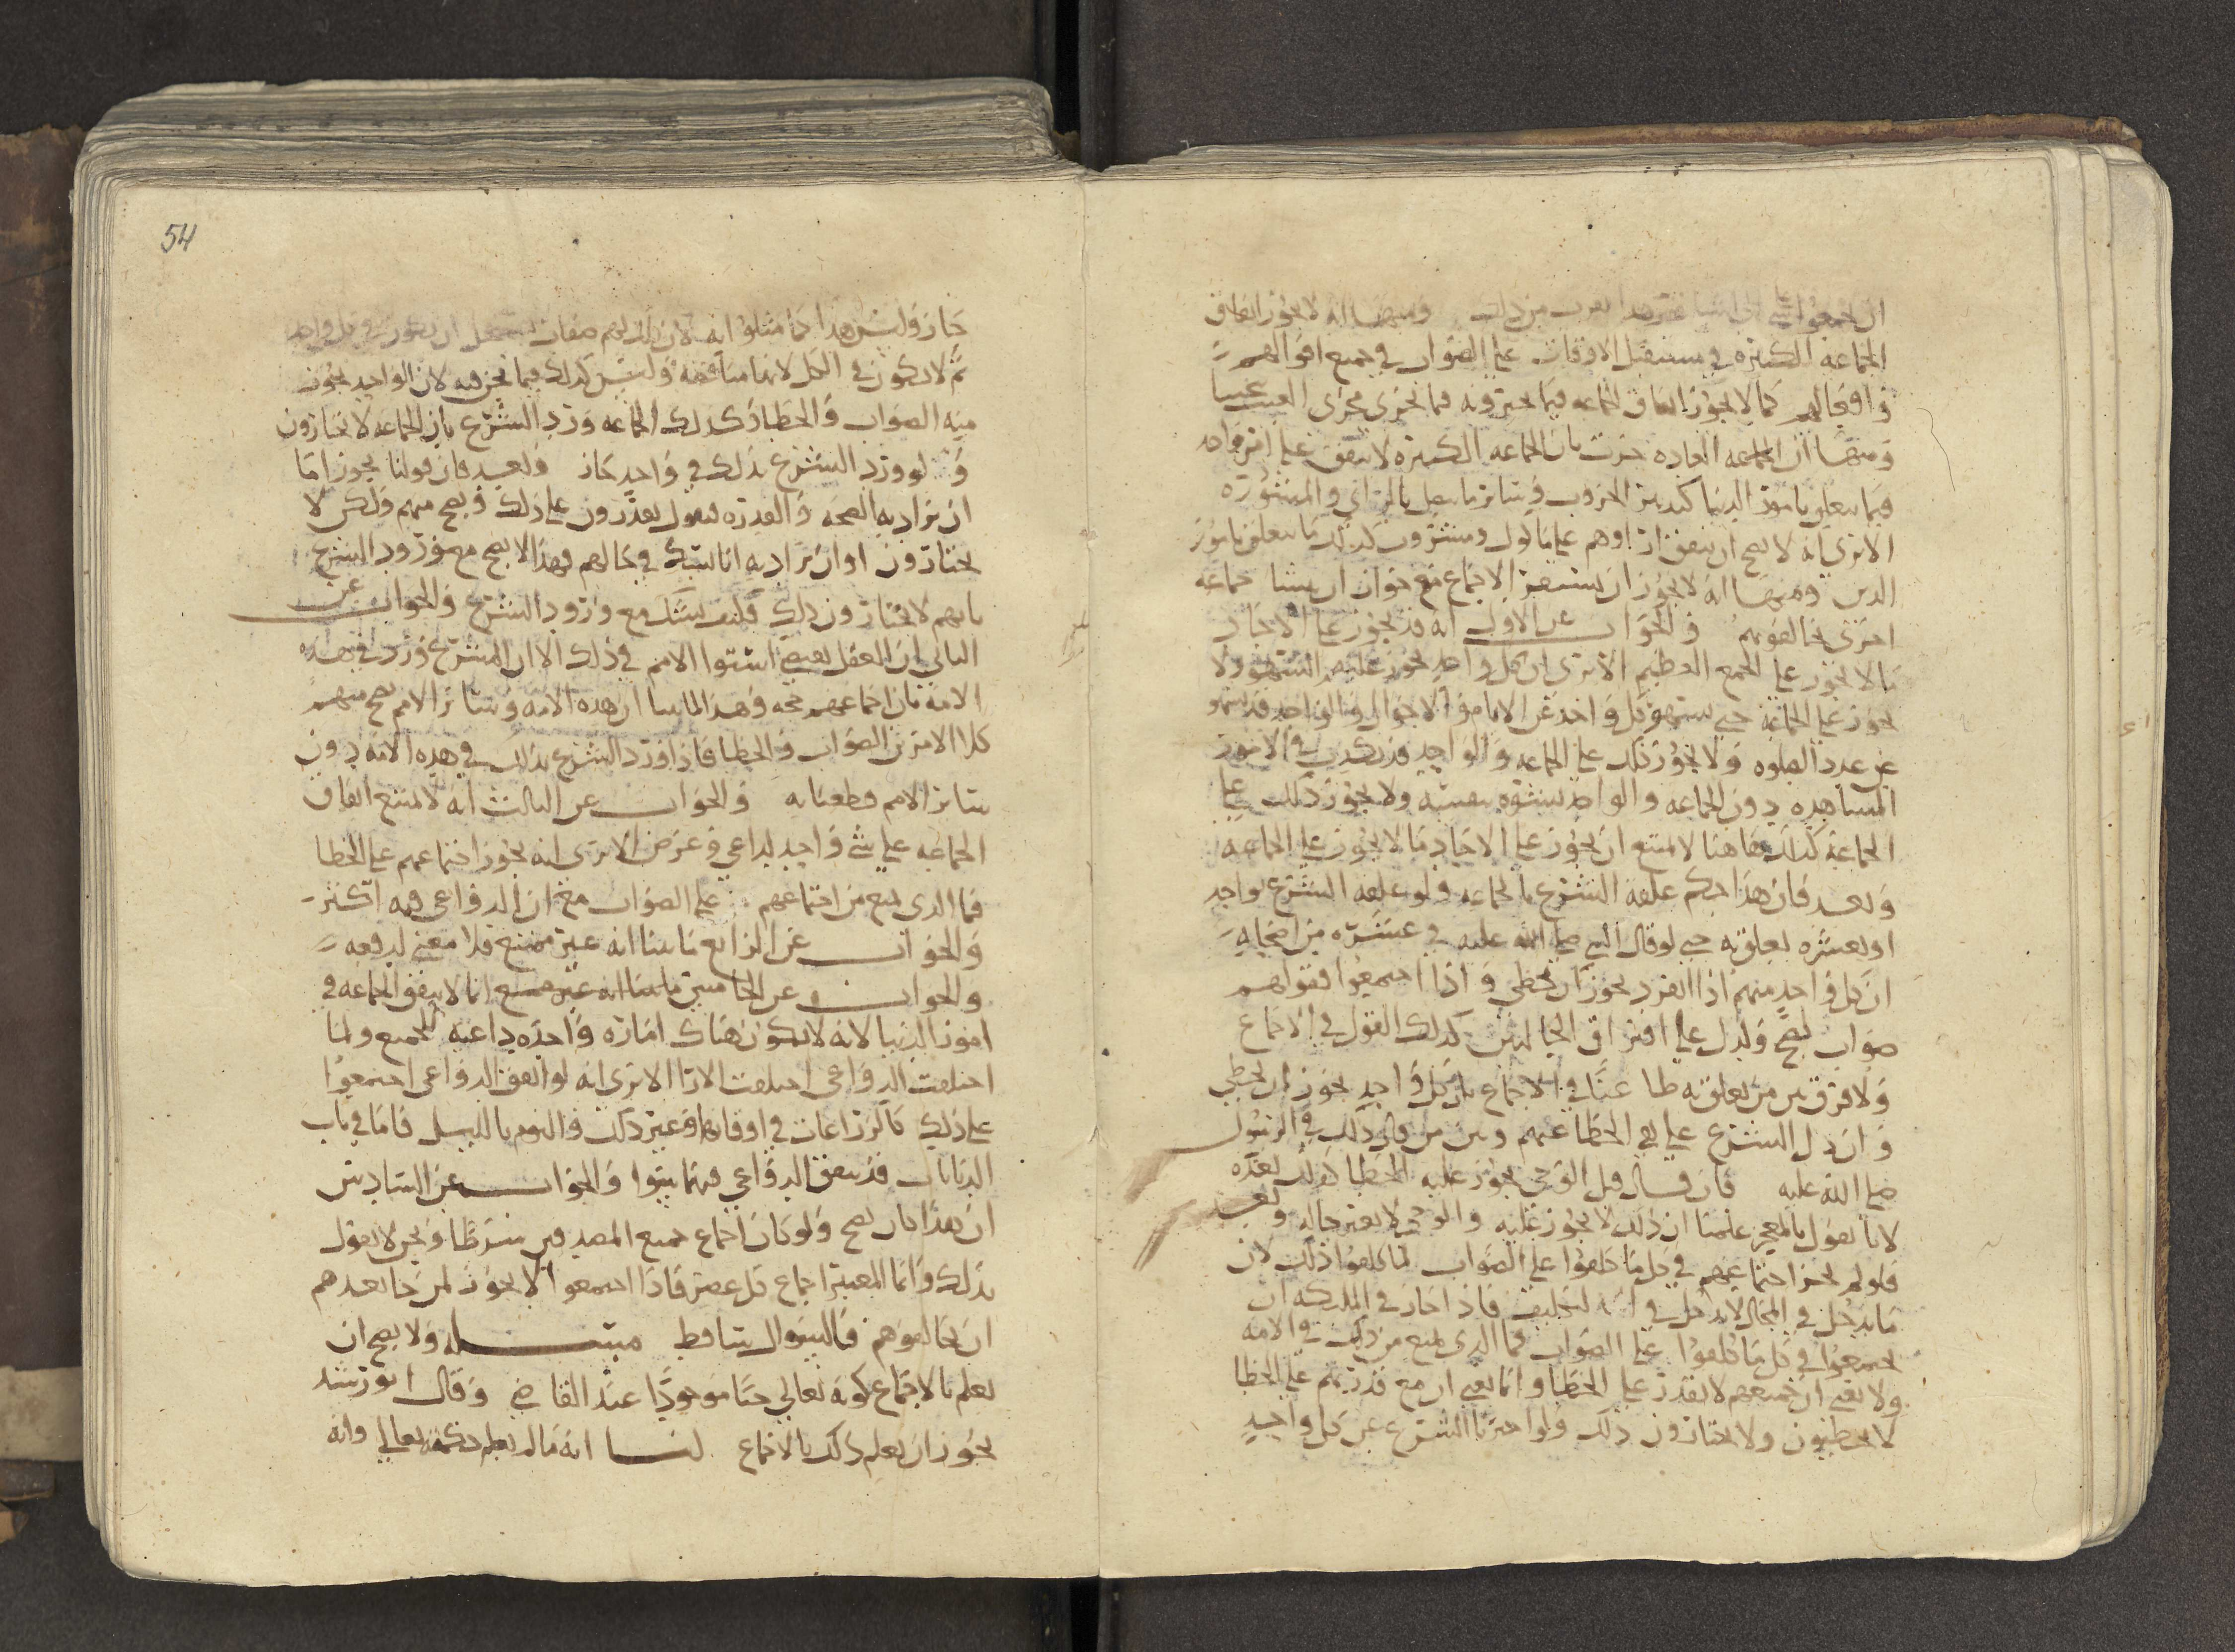 ومنها انه لا يجوز اتفاق
الجماعة الكثيرة في مستقبل الاوقات على الصواب في جميع اقوالهم
وافعالهم كما لا يجوز اتفاق الجماعه فيما يخبرونه فيما يجري مجرى الغيب
ومنها ان العاده جرت بان الجماعه الكثيرة لا تتفق على امر واحد
فيما يتعلق بامور الدنيا كتدبير الحروب وسائر ما يتصل بالراي والمشورة
الا ترى انه لا يصح ان يتفق اراوهم على ماكول ومشروب كذلك ما يتعلق بامور
الدين ومنها انه لا يجوز ان يستقر الاجماع مع جواز ان ينشا جماعه
اخرى يخالفونهم والجواب عن الاول انه قد يجوز على الاحاد
ما لا يجوز على الجمع العظيم الا ترى ان كل واحد يجوز عليه السهو ولا
يجوز على الجماعة حتى يسهو كل واحد عن الامام والاحوال والواحد قد يسهو
عن عدد الصلوه ولا يجوز ذلك على الجماعه والواحد قد يكذب في الامور
المشاهده دون الجماعه والواحد يشوه بنفسه ولا يجوز ذلك على
الجماعة كذلك هاهنا لا يمتنع ان يجوز على الاحاد ما لا يجوز على الجماعه
وبعد فان هذا حكم علقه الشرع بالجماعه ولو علقه الشرع بواحد
او بعشره لعلق به حتى لو قال النبي صلى الله عليه في عشره من اصحابه
ان كل واحد منهم اذا انفرد يجوز ان يخطي واذا اجتمعوا فقولهم
صواب لصح ولدل على افتراق الحالتين كذلك القول في الاجماع
ولا فرق بين من تعلق به طاعنا في الاجماع بان كل واحد يجوز ان يخطي
وان دل الشرع على نفي الخطا عنهم وبين من قال ذلك في الرسول
صلى الله عليه فان قال قبل الوحي يجوز عليه الخطا كذلك بعده
لانا نقول بالمعجز علمنا ان ذلك لا يجوز عليه والوحي لا يغير حاله وبعد
فلو لم يجز اجتماعهم في كل ما كلفوا على الصواب لما كلفوا ذلك لان
ما يدخل في المحال لا يدخل في التكليف فاذا جاز في الملئكه ان
يجتمعوا في كل ما كلفوا على الصواب فما الذي يمنع من ذلك في الامه
ولا نعني ان جميعهم لا يقدر على الخطا وانما نعني ان مع قدرتهم على الخطا
لا يخطئون ولا يختارون ذلك ولو اخبرنا الشرع عن كل واحد
54
جاز وليس هذا كما مثلوا انه
ثم لا يكون في الكل لانها مناقضه وليس كذلك فيما نحن فيه لان الواحد يجوز
منه الصواب والخطا وكذلك الجماعه ورد الشرع بان الجماعه لا يختارون
ولو ورد الشرع بذلك في واحد جاز وبعد فان قولنا يجوز اما
ان يراد به الصحه والقدره فنقول يقدرون على ذلك ويصح منهم ولكن لا
يختارون او ان يراد به انا نشك في حالهم فهذا لا يصح مع ورود الشرع
بانهم لا يختارون ذلك فكيف يشك مع ورود الشرع والجواب عن
الثاني ان العقل يقتضي استوا الامم في ذلك الا ان الشرع ورد في هذه
الامه بان اجماعهم حجه وهذا لما بينا ان هذه الامه وسائر الامم يصح منهم
كلا الامرين الصواب والخطا فاذا ورد الشرع بذلك في هذه الامه دون
سائر الامم قطعنا به والجواب عن الثالث انه لا يمتنع اتفاق
الجماعه على شي واحد لداعي وغرض الا ترى انه يجوز اجتماعهم على الخطا
فما الذي يمنع من اجتماعهم على الصواب مع ان الدواعي فيه اكثر
والجواب عن الرابع ما بينا انه غير ممتنع فلا معنى لدفعه
والجواب عن الخامس ما بينا انه غير ممتنع انما لا يتفق الجماعه في
امور الدنيا لانه لا يكون هناك امارة واحده داعيه للجميع ولما
اختلفت الدواعي اختلفت الارا الا ترى انه لو اتفق الدواعي اجتمعوا
على ذلك كالزراعات في اوقاتها وغير ذلك والنوم بالليل فاما في باب
الديانات فقد يتفق الدواعي فيما بينوا والجواب عن السادس
ان هذا كان يصح ولو كان اجماع جميع المصدقين شرطا ونحن لا نقول
بذلك وانما المعتبر اجماع كل عصر فاذا اجتمعوا لا يجوز لمن جا بعدهم
ان يخالفوهم فالسوال ساقط مسئله ولا يصح ان
يعلم بالاجماع كونه تعالى حيا موجودا عند القاضي وقال ابو رشيد
يجوز ان يعلم ذلك بالاجماع لنا انه ما لم يعلم حكمته تعالى وانه